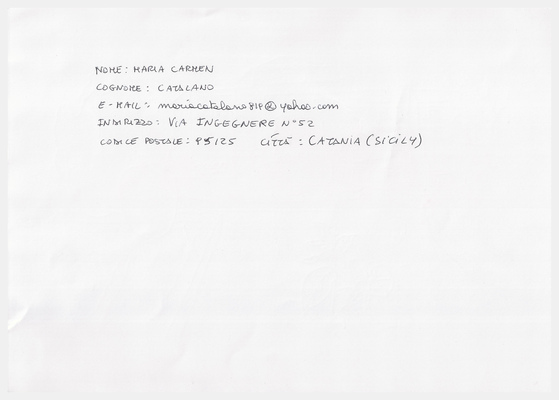 NOME: MARIA CARMEN
COGNOME: CATALANO
E-MAIL: mariacatalano819@yahoo.com
INDIRIZZO: VIA INGEGNERE N°52
CODICE POSTALE: 95125 CITTÀ: CATANIA (SICILY)